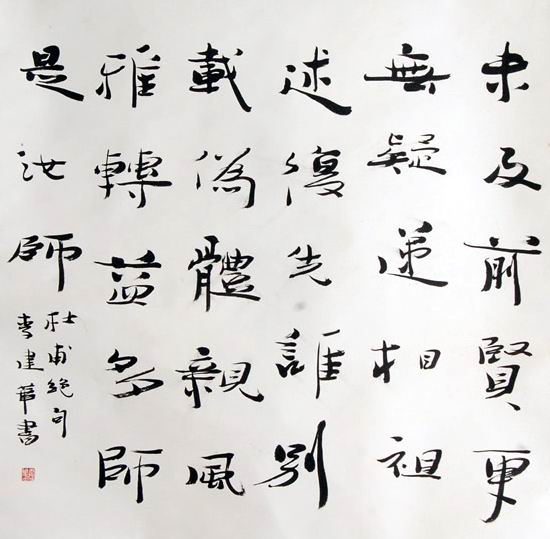 未及前賢更
無疑遞相祖
述復先誰別
載偽體親風
雅轉益多師
是汝師
杜甫絕句
建華書